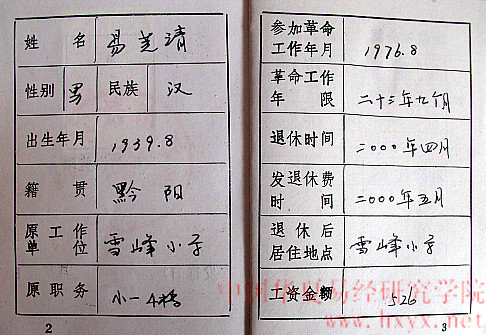 姓 名 易芝清
性别 男 民族 汉
出生年月 1939.8
籍 贯 黔阳
原工作
单 位 雪峰小学
原职务 小一
2
参加革命
工作年月 1976.8
革命工作
年 限 二十三年九个月
退休时间 二000年四月
发退休费
时 间 二000年五月
退休后
居住地点 雪峰小学
工资金额 526
3
中国华易易经研究学院
www.hxyx.net